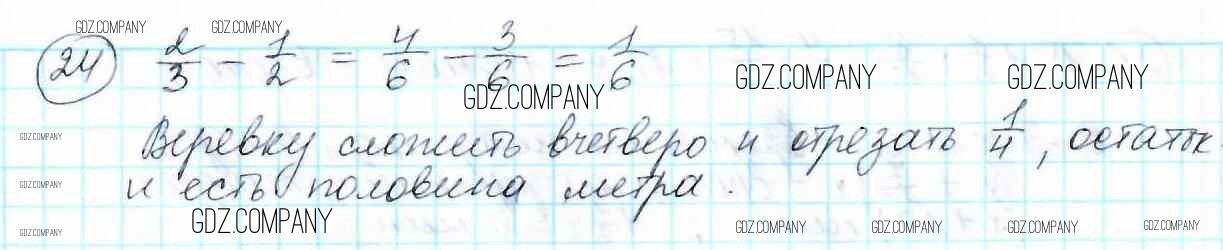 GDZ.COMPANY GDZ.COMPANY
24 2/3 - 1/2 = 4/6 - 3/6 = 1/6
GDZ.COMPANY GDZ.COMPANY GDZ.COMPANY
GDZ.COMPANY Веревку сложить вчетверо и отрезать 1/4, остаток
GDZ.COMPANY и есть половина метра.
GDZ.COMPANY GDZ.COMPANY GDZ.COMPANY GDZ.COMPANY GDZ.COMPANY GDZ.COMPANY